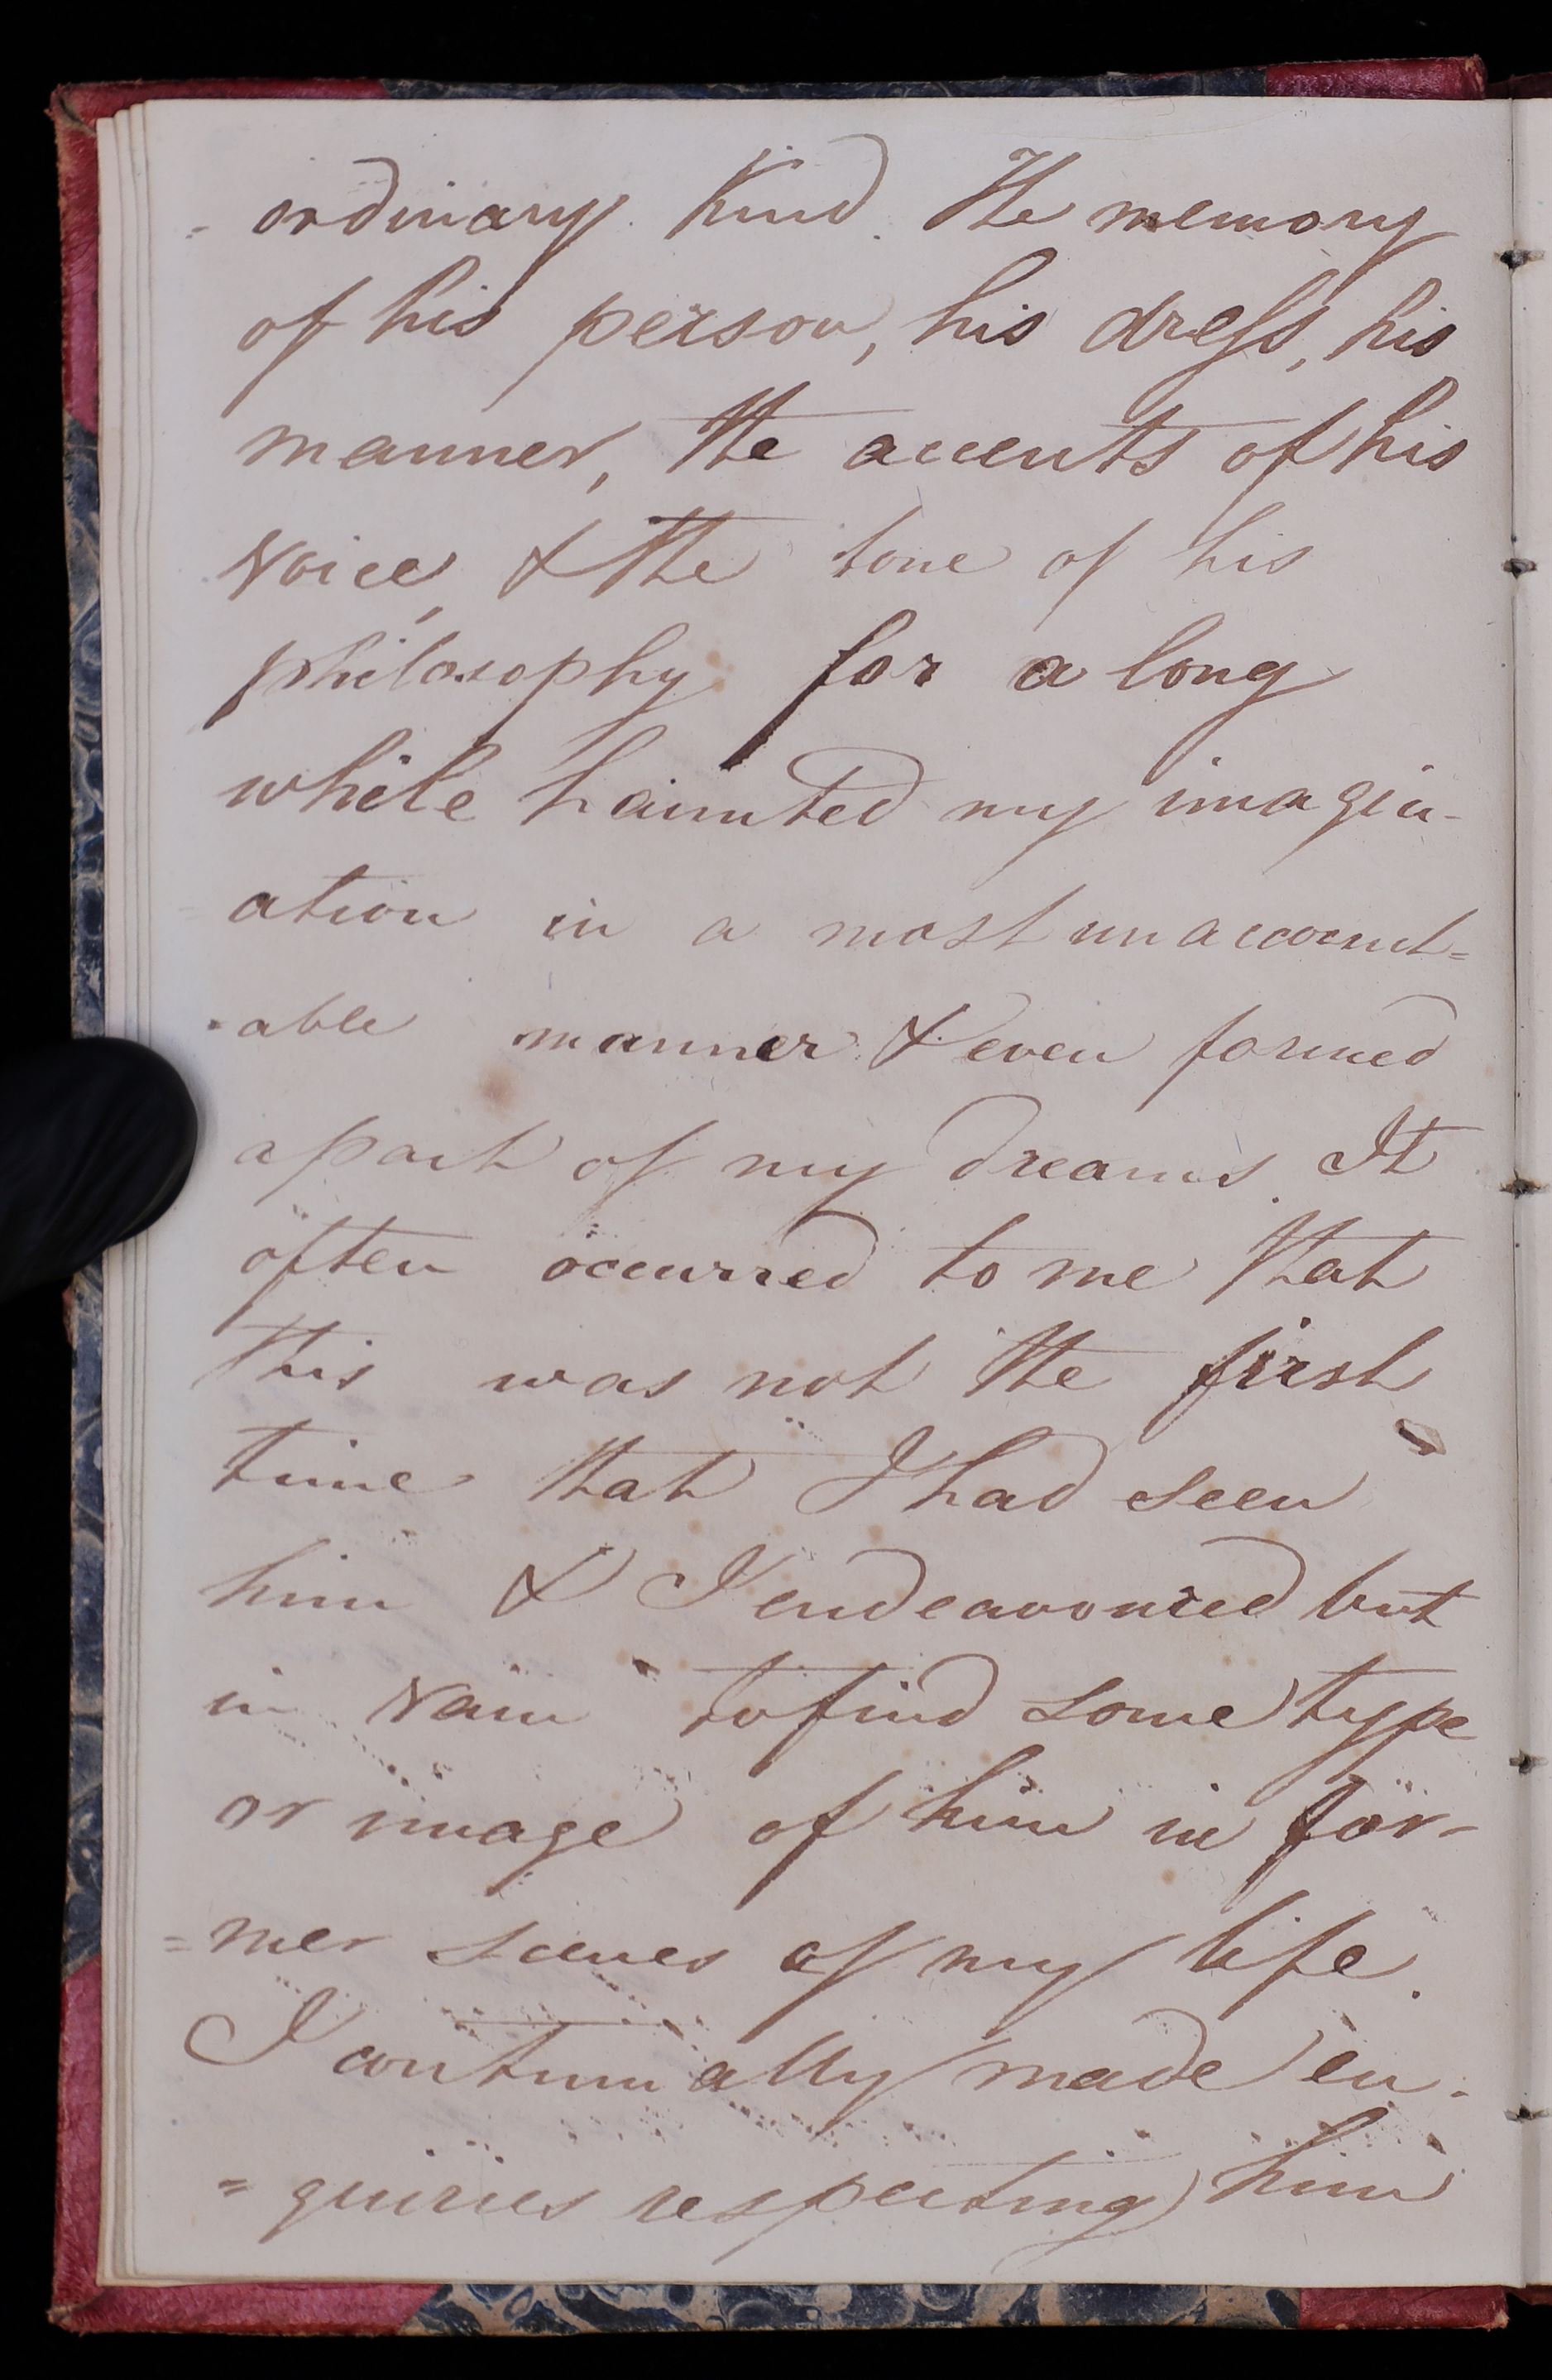 = ordinary kind. The memory
of his person, his dress, his
manner, the accents of his
voice, & the tone of his
philosophy for a long
while haunted my imagin-
ation in a most unaccount=
=able manner & even formed
a part of my dreams. It
often occurred to me that
this was not the first
time that I had seen
him & I endeavoured but
in vain to find some type
or image of him in for-
=mer scenes of my life.
I continually made en-
=quiries respecting him